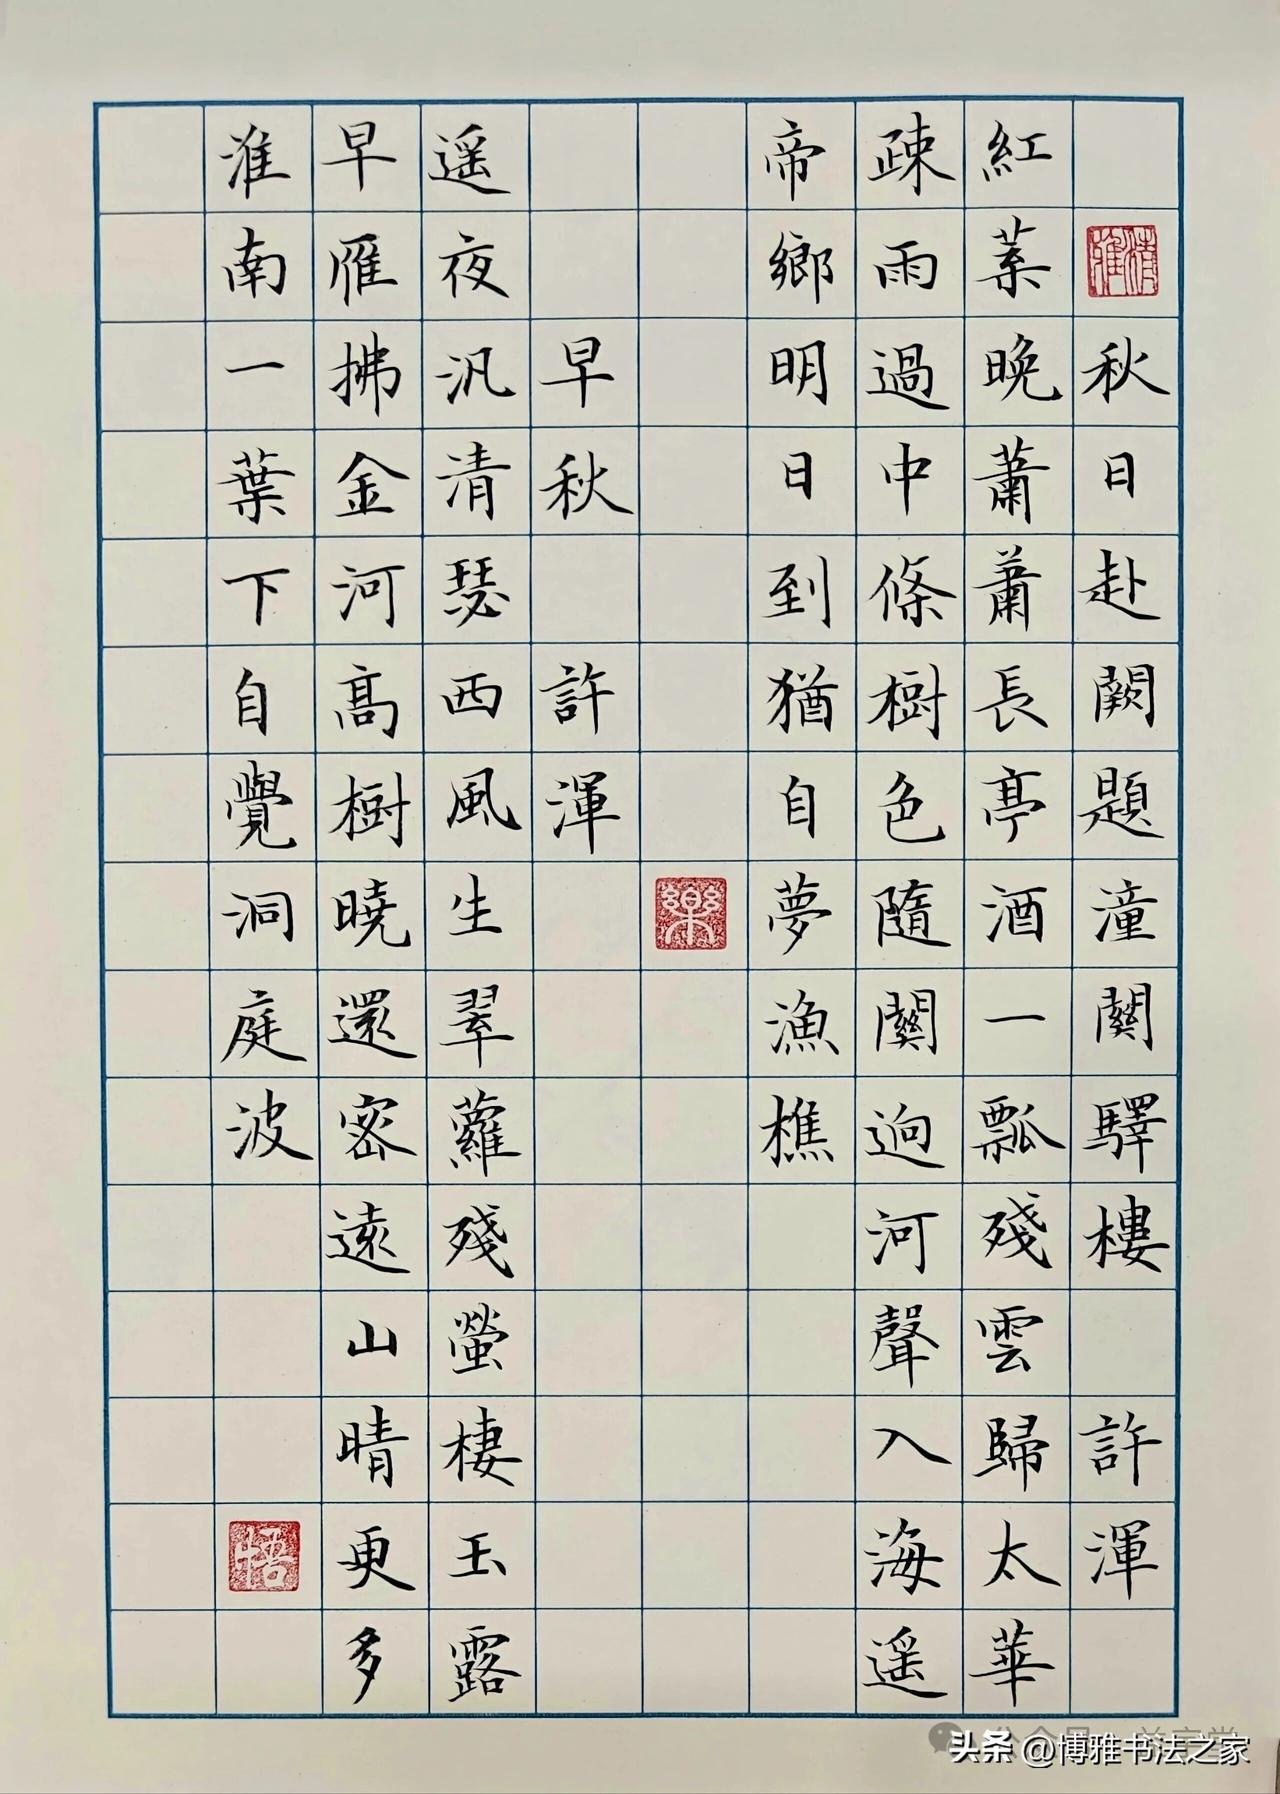 清雅
秋日赴闕題潼關驛樓 許渾
紅葉晚蕭蕭長亭酒一瓢殘雲歸太華
疎雨過中條樹色隨關迥河聲入海遥
帝鄉明日到猶自夢漁樵
樂
早秋 許渾
遥夜汎清瑟西風生翠蘿殘螢棲玉露
早雁拂金河髙樹曉還密遠山晴更多
淮南一葉下自覺洞庭波
悟
头条 @博雅书法之家